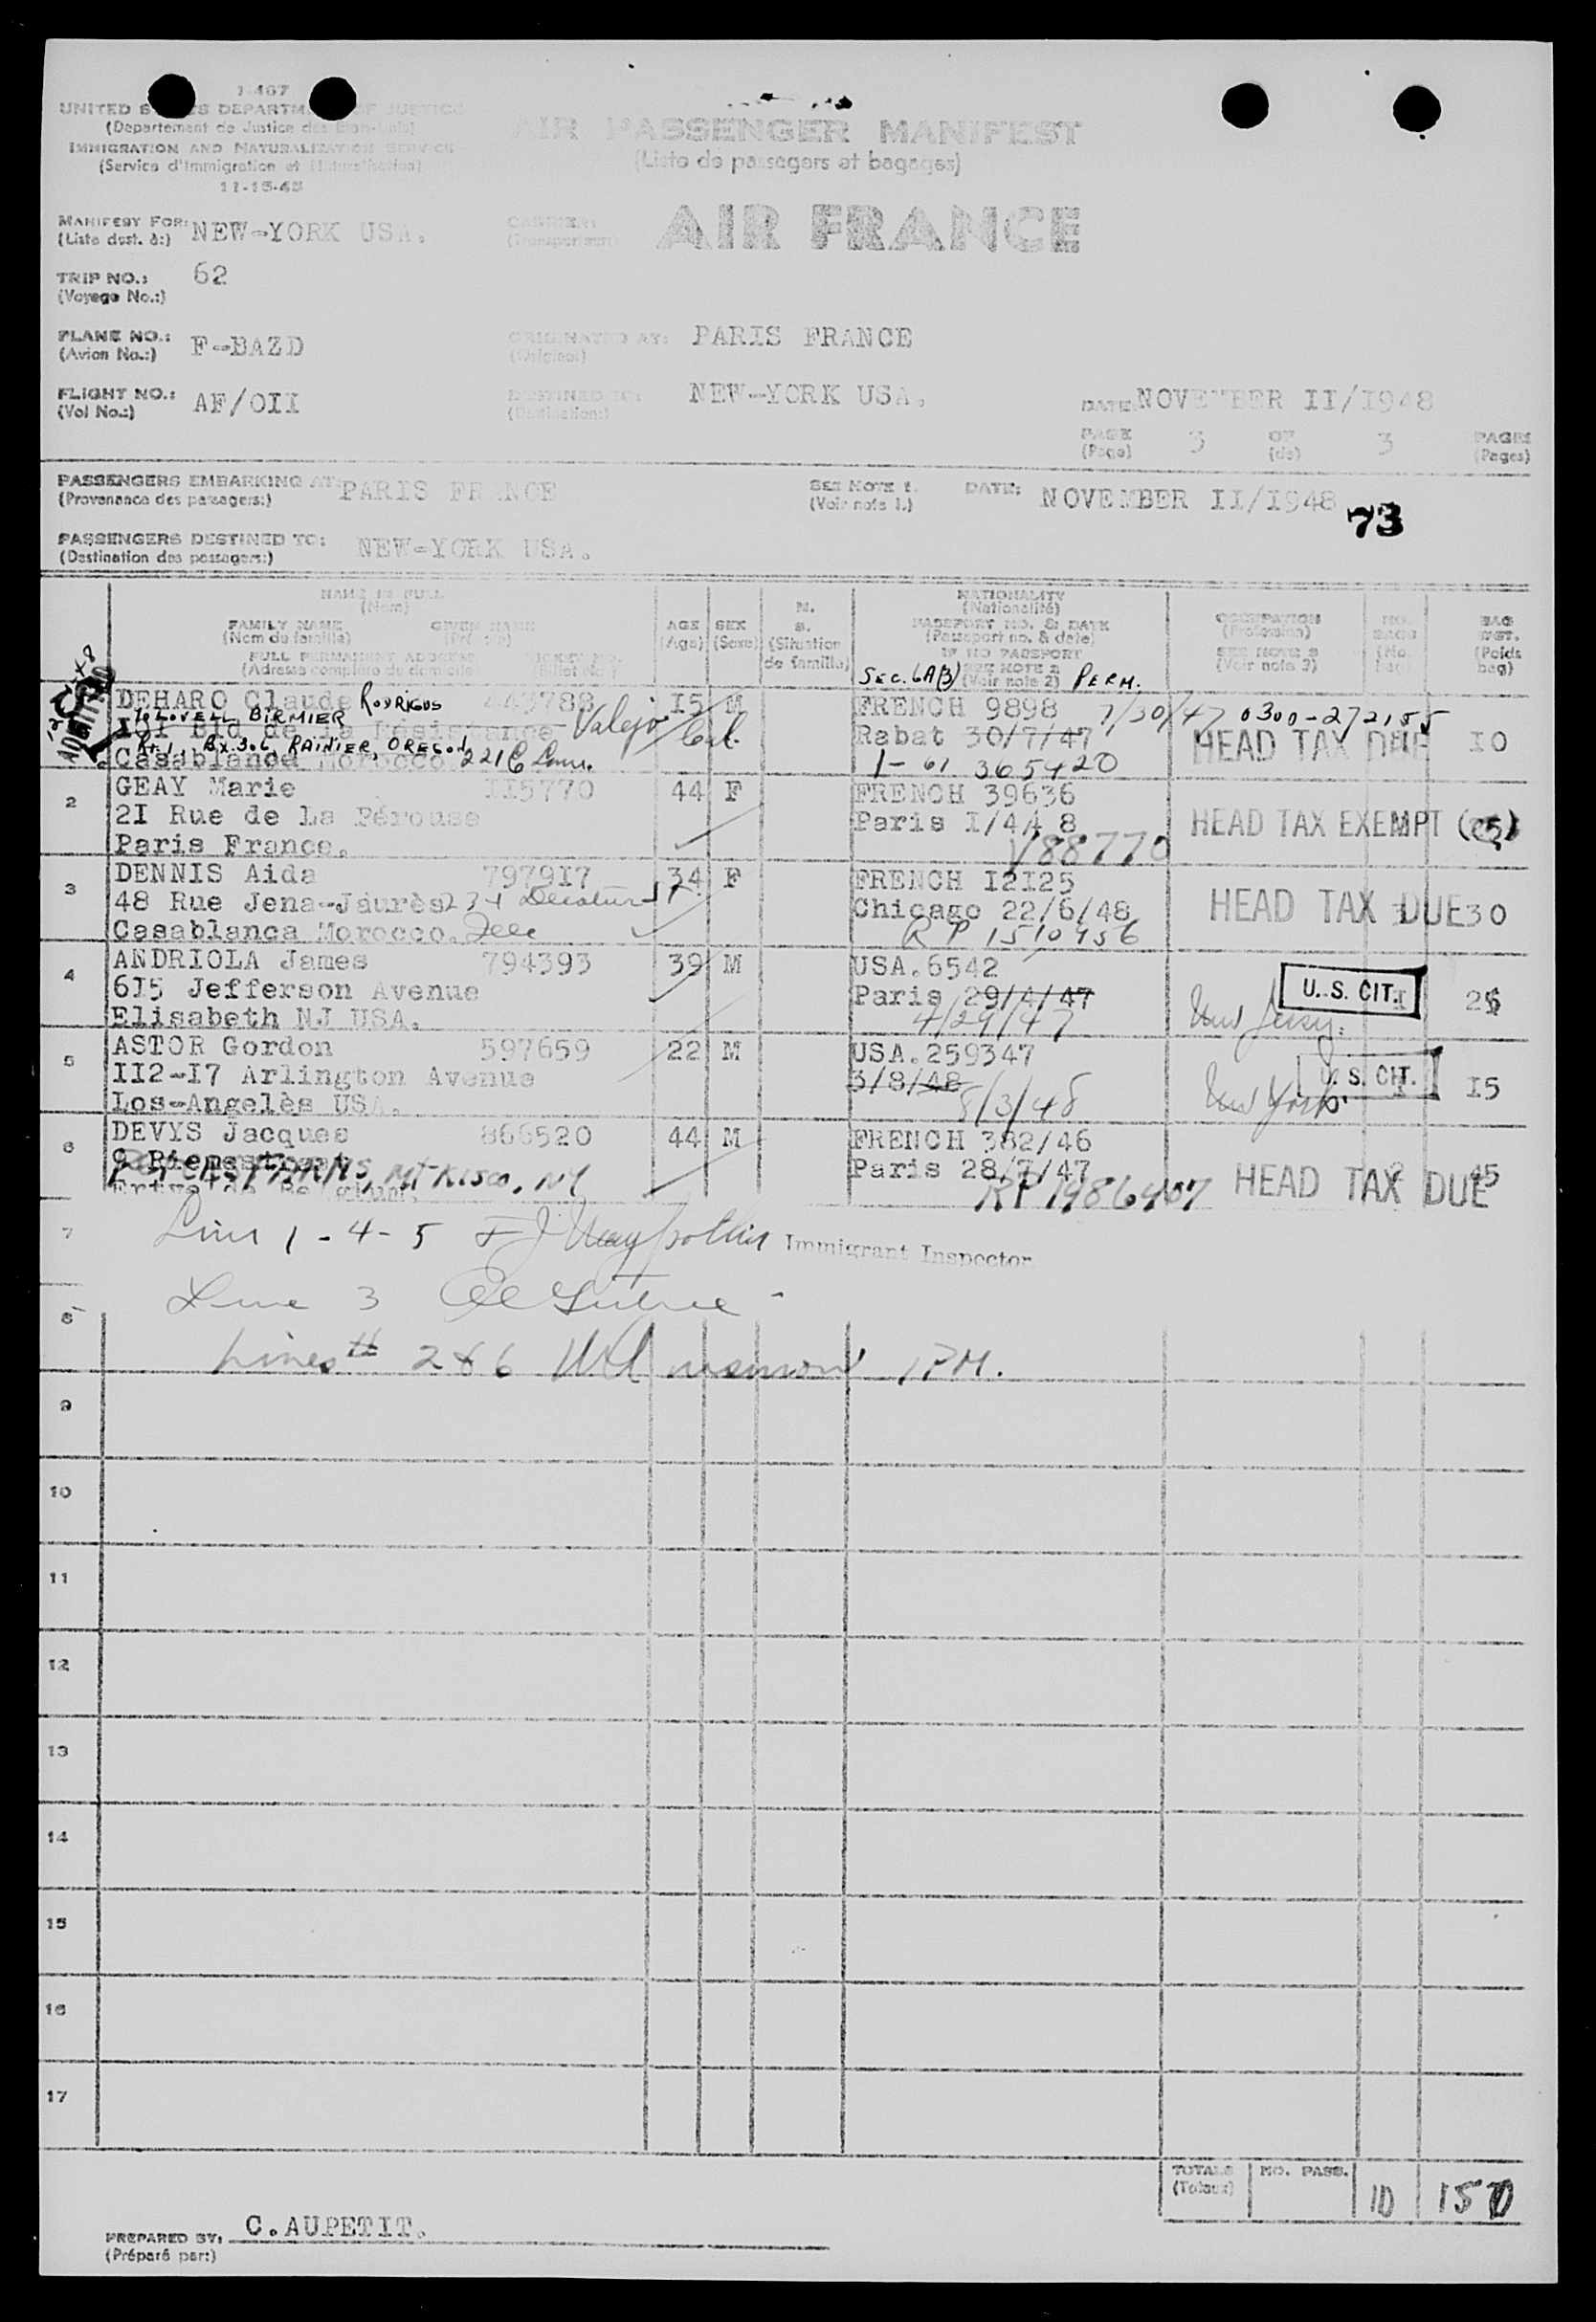 I-467
UNITED STATES DEPARTMENT OF JUSTICE
(Departement de Justice des Etats-Unis)
IMMIGRATION AND NATURALIZATION SERVICE
(Service d'Immigration et Naturalisation)
11-15-45
AIR PASSENGER MANIFEST
(Liste de passagers et bagages)
MANIFEST FOR: NEW-YORK USA.
(Liste dest. à:)
CARRIER: AIR FRANCE
(Transporteur)
TRIP NO.: 62
(Voyage No.:)
PLANE NO.: F-BAZD
(Avion No.:)
ORIGINATED AT: PARIS FRANCE
(Origine)
FLIGHT NO.: AF/OII
(Vol No.:)
DESTINED TO: NEW-YORK USA.
(Destination:)
DATE: NOVEMBER II/I948
PAGE 3 OF 3 PAGES
(Page) (de) (Pages)
PASSENGERS EMBARKING AT: PARIS FRANCE
(Provenance des passagers:)
SEE NOTE 1.
(Voir note 1.)
DATE: NOVEMBER II/I948
73
PASSENGERS DESTINED TO: NEW-YORK USA.
(Destination des passagers:)
NAME IN FULL
(Nom)
FAMILY NAME GIVEN NAME
(Nom du famille)
FULL PERMANENT ADDRESS TICKET NO.
(Adresse complete du domicile) (Billet No.)
AGE
(Age)
SEX
(Sexe)
M.
S.
(Situation
de famille)
NATIONALITY
(Nationalité)
PASSPORT NO. & DATE
(Passeport no. & date)
IF NO PASSPORT
SEE NOTE 2
(Voir note 2)
SEC. 6A(3) PERM.
OCCUPATION
(Profession)
SEE NOTE 3
(Voir note 3)
NO.
BAGS
BAG
WGT.
(Poids
bag)
ADMITTED
DEHARO Claude RODRIGUS 445788 I5 M FRENCH 9898 7/30/47 0300-272155
To LOVELL BIRMIER
I0I Bld de la Résistance Valejo Cal. Rabat 30/7/47 HEAD TAX DUE I0
Rt. 1, Bx. 306, RAINIER, OREGON
Casablanca Morocco 221 C 1-61 365420
2 GEAY Marie II5770 44 F FRENCH 39636
2I Rue de La Pérouse Paris I/4/4 8 HEAD TAX EXEMPT
Paris France. V88770
3 DENNIS Aida 7979I7 34 F FRENCH I2I25
48 Rue Jena-Jaurès 234 Decatur St. Chicago 22/6/48 HEAD TAX DUE 30
Casablanca Morocco. RP 1510456
4 ANDRIOLA James 794393 39 M USA.6542 U.S. CIT.
6I5 Jefferson Avenue Paris 29/4/47 New Jersey.
Elisabeth NJ USA. 4/29/47
5 ASTOR Gordon 597659 22 M USA.259347 U.S. CIT.
II2-I7 Arlington Avenue 3/8/48 New York I5
Los-Angelès USA. 8/3/48
6 DEVYS Jacques 866520 44 M FRENCH 382/46
MT KISCO, NY Paris 28/7/47 HEAD TAX DUE 45
RP 1986407
7 Lines 1-4-5 Immigrant Inspector
Line 3
8
Lines 2 & 6 1PM.
9
10
11
12
13
14
15
16
17
TOTALS NO. PASS. 10 150
(Totaux)
PREPARED BY: C.AUPETIT.
(Préparé par:)